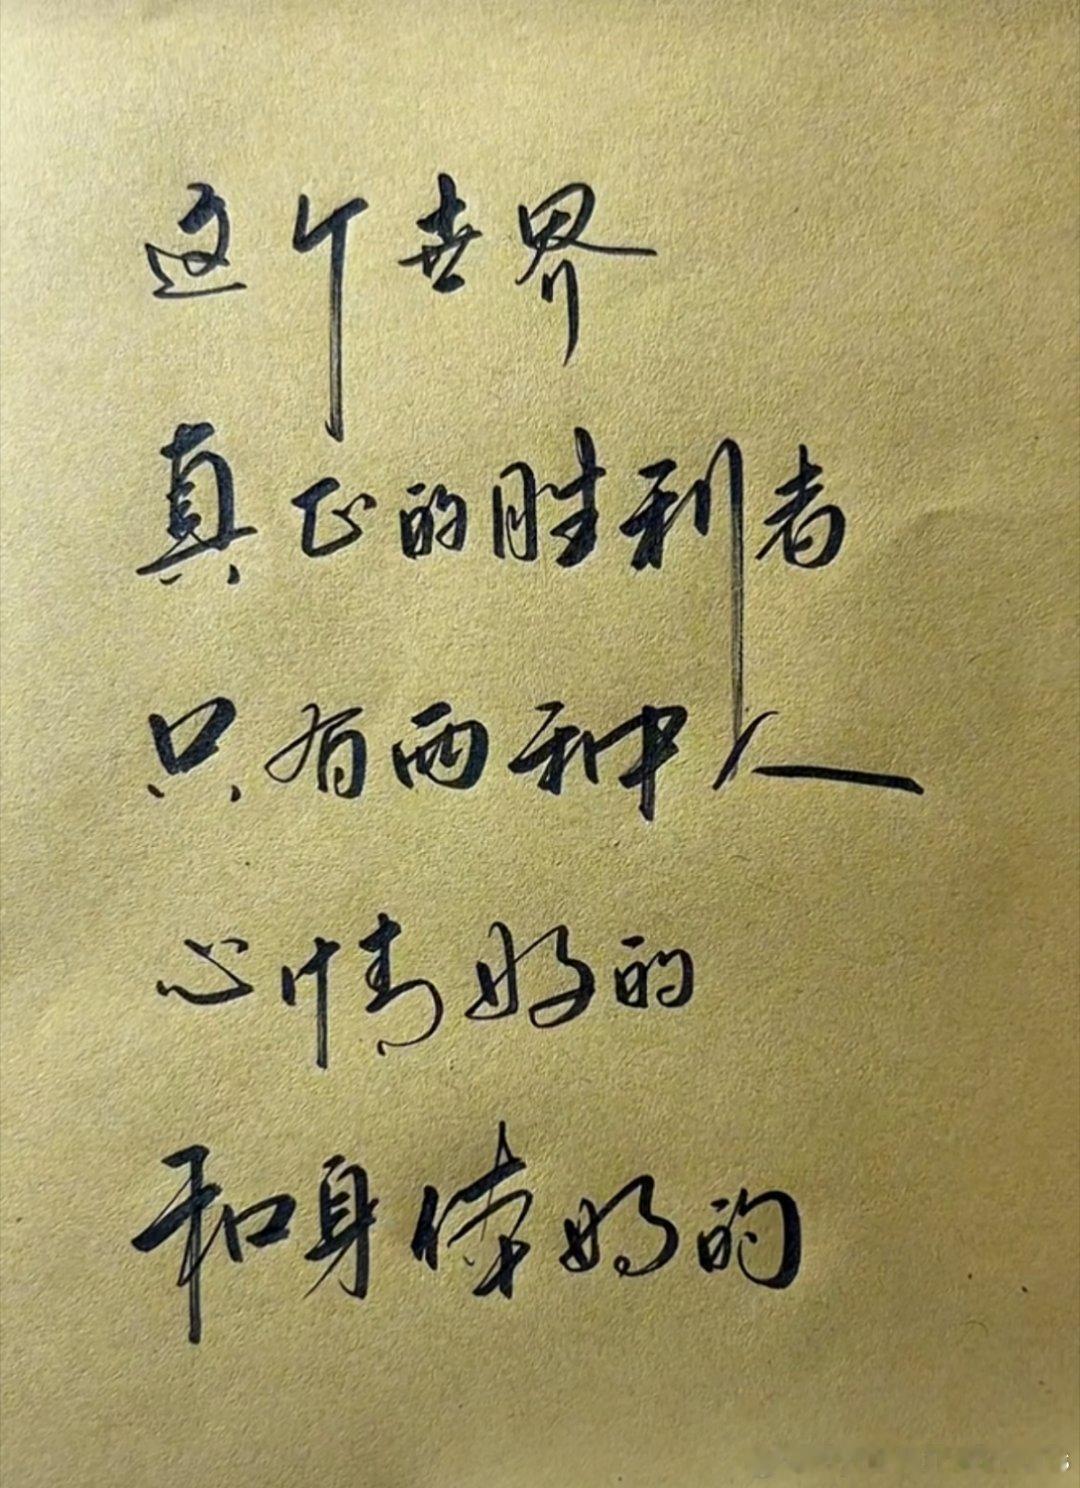 这个世界
真正的胜利者
只有两种人
心情好的
和身体好的